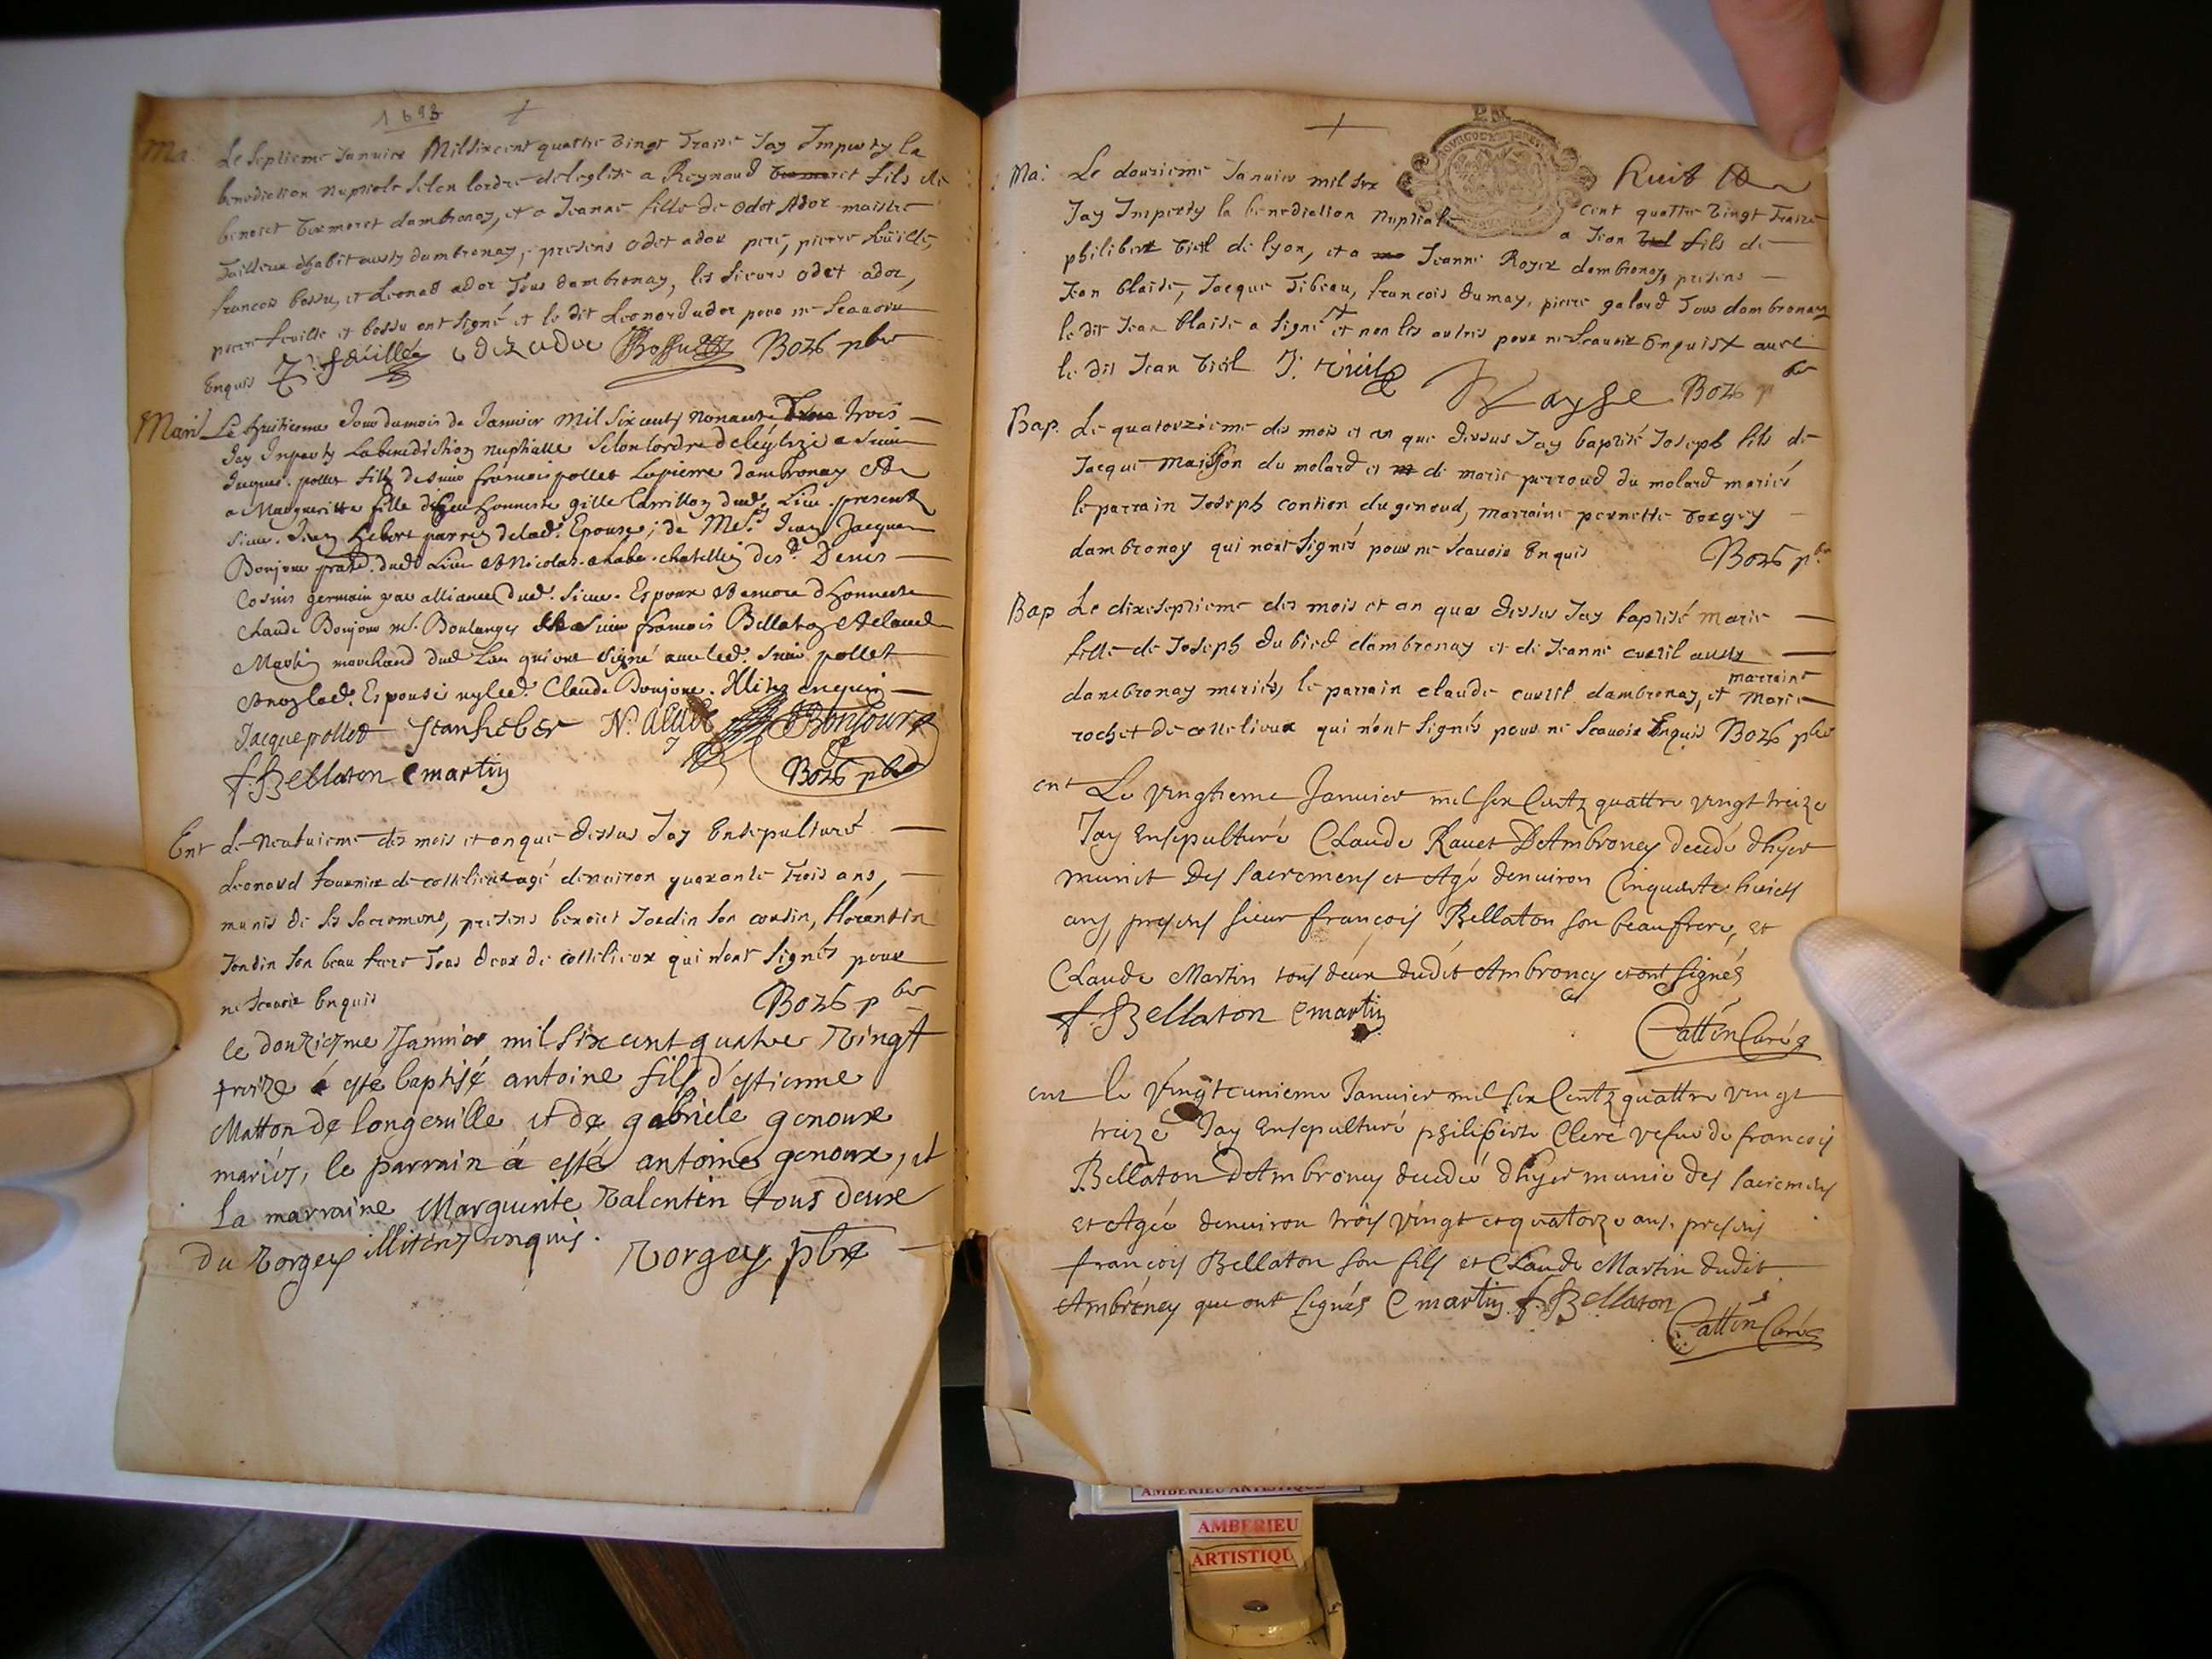 1693
Ma: Le septieme Janvier Mil six cent quattre vingt Traise Jay Imparty la
benediction nuptiale selon lordre deleglise a Reynaud fils de
benoist dambronay, et a Jeanne fille de odet Ador maistre
Tailleur dhabit ausy dambronay, presens odet ador pere, pierre
francois bossu, et Leonard ador Tous dambronay, les sieurs odet ador,
pierre et bossu ont signé et le dit Leonord ador pour ne scauoir
Enquis odez ador Bossu Bozb pbre
Mari Le huitieme Jour du mois de Janvier Mil six cents nonante trois
Jay Inparty La benediction nuptialle selon lordre deleglize a sieur
Jacques pollet fils de sieur francois pollet Lapierre dambronay et
a Margueritte fille de feu honneste gille dud. Lieu presents
sieur Jean parrein delad. Epouse; de Mes. Jean Jacques
Bonjour dud Lieu et Nicolas chatellin des. Denis
Cosins germain par alliance dud. sieur Espoux
Claude Bonjour m. Boulanger sieur francois Bellaton et claude
Martin marchand dud Lieu qui ont signé auec led. sieur pollet
Espouse ny led. Claude Bonjour. Illitz enquis
Jacque pollet Jean heber N. alabe Bonjour
f. Bellaton C martin Bozb pbre
Ent Le neufuieme des mois et an que dessus Jay Ensepulturé
Leonard fournier de cottelieux agé denuiron quarante Trois ans,
munis de ses sacremens, presens benoist Jordin son cousin, florentin
Jordin son beau frere Tous deux de cottelieux qui nont signés pour
ne scauoir Enquis Bozb pbre
Le douziesme Januier mil six cent quatre vingt
treize à esté baptisé antoine fils d'estienne
Matton de longeville et de gabriele genoux
mariés, le parrain à esté antoine genoux, et
la marraine Marguerite valentin tous deux
du vorgey illiterés enquis. vorgey pbre
huit
Ma: Le douzieme Januier mil six cent quattre vingt Traise
Jay Imparty la benediction Nuptiale a Jean fils de
philibert viel de lyon, et a Jeanne Royer dambronay, presens
Jean blaise, Jacque Tibeau, francois dumay, pierre galard Tous dambronay
le dit Jean blaise a signé et non les autres pour ne scauoir Enquis auec
le dit Jean viel J. viel Blayse Bozb pbre
Bap. Le quatorzieme des mois et an que dessus Jay baptisé Joseph fils de
Jacque Maisson du molard et de marie perroud du molard mariés
le parrain Joseph contion du genoud, marraine pernette vorgey
dambronay qui nont signés pour ne scauoir Enquis Bozb pbr
Bap Le dixseptieme des mois et an que dessus Jay baptisé marie
fille de Joseph dubied dambronay et de Jeanne curtil aussy
marraine
dambronay mariés, le parrain claude curtil dambronay, et Marie
rochet de cottelieux qui nont signés pour ne scauoir Enquis Bozb pbre
ent Le vingtieme Januier mil six Centz quattre vingt treize
Jay Ensepulturé Claude Rauet DAmbronay decedé dhyer
munit des sacremens et Agé denuiron Cinquante huict
ans, presens sieur françois Bellaton son beaufrere, et
Claude Martin tous deux dudit Ambronay et ont signés
f. Bellaton C martin Cattin Curé
ent le vingteunieme Januier mil six Centz quattre vingt
treize Jay Ensepulturé philiberte Cleré vefue de francois
Bellaton DAmbronay decedeé dhyer munie des sacremens
et Ageé denuiron trois vingt et quatorze ans. presens
françois Bellaton son fils et Claude Martin dudit
Ambronay que ont signés C martin f. Bellaton
Cattin Curé
AMBERIEU ARTISTIQUE
AMBERIEU
ARTISTIQU